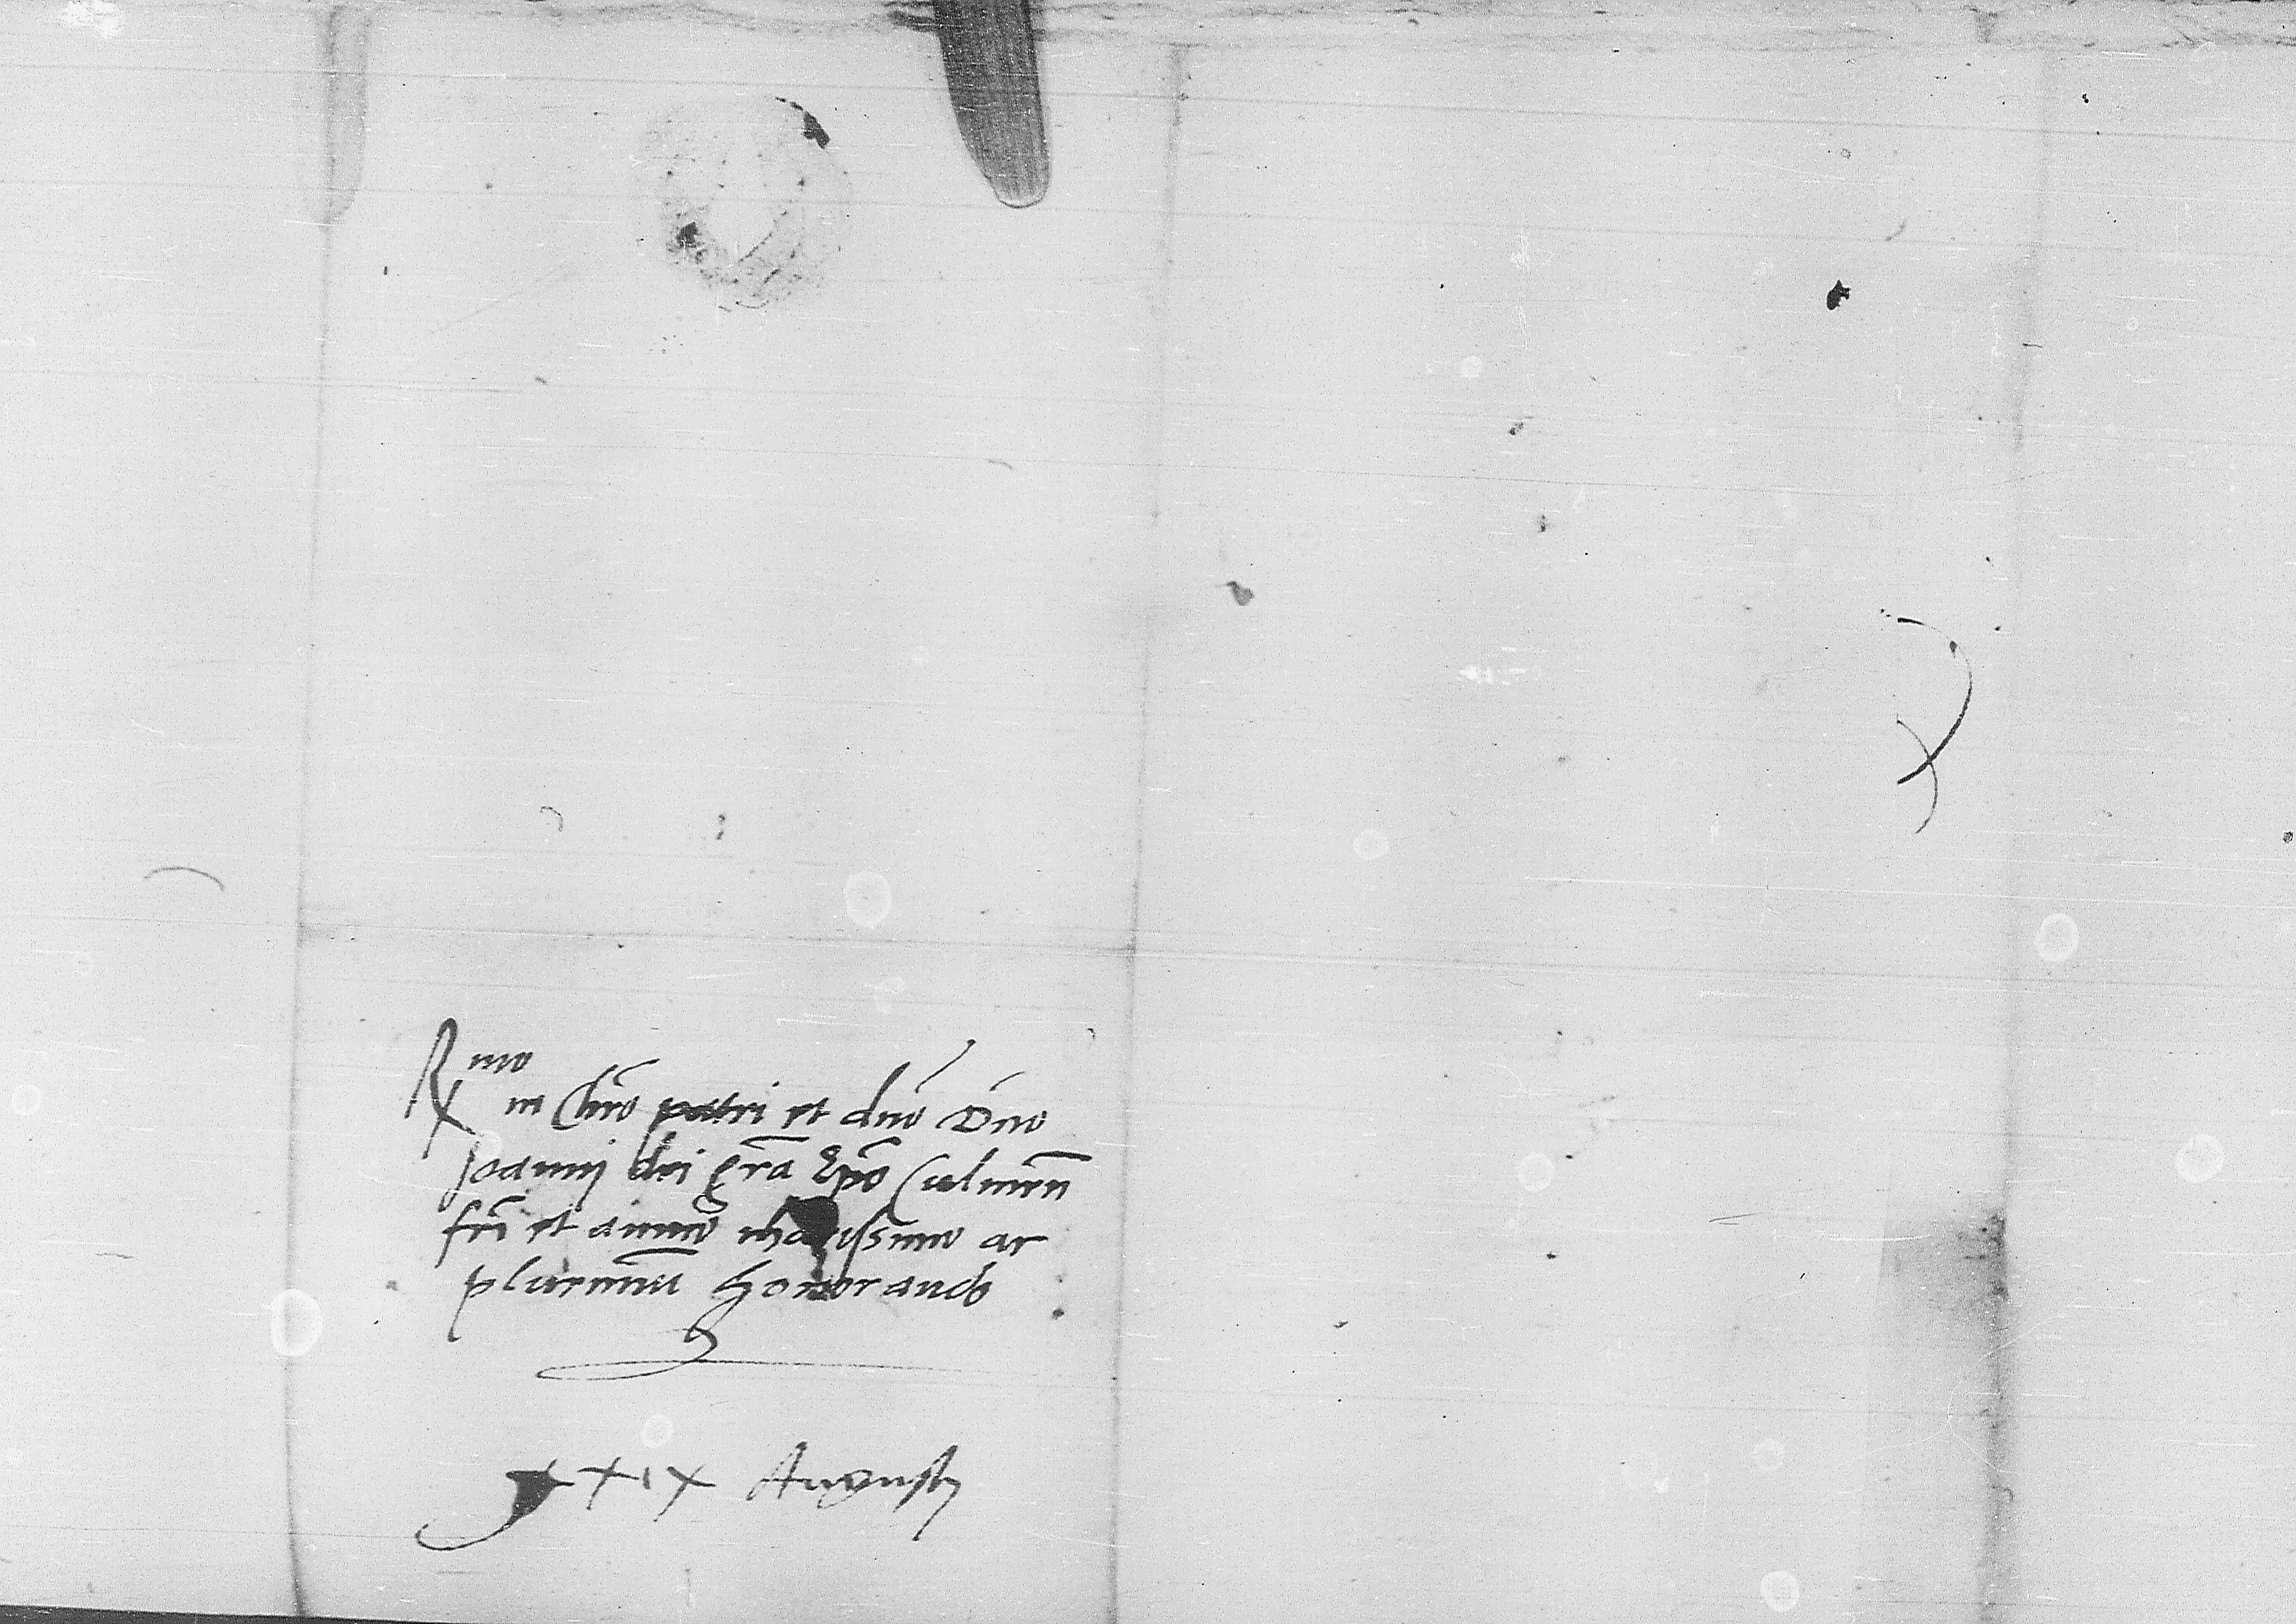 Rmo
in Chro patri et dno Dno
Joanni dei gra Epo Culmen
fri et amico charissimo ac
plurimu honorando
XXIX Augusti